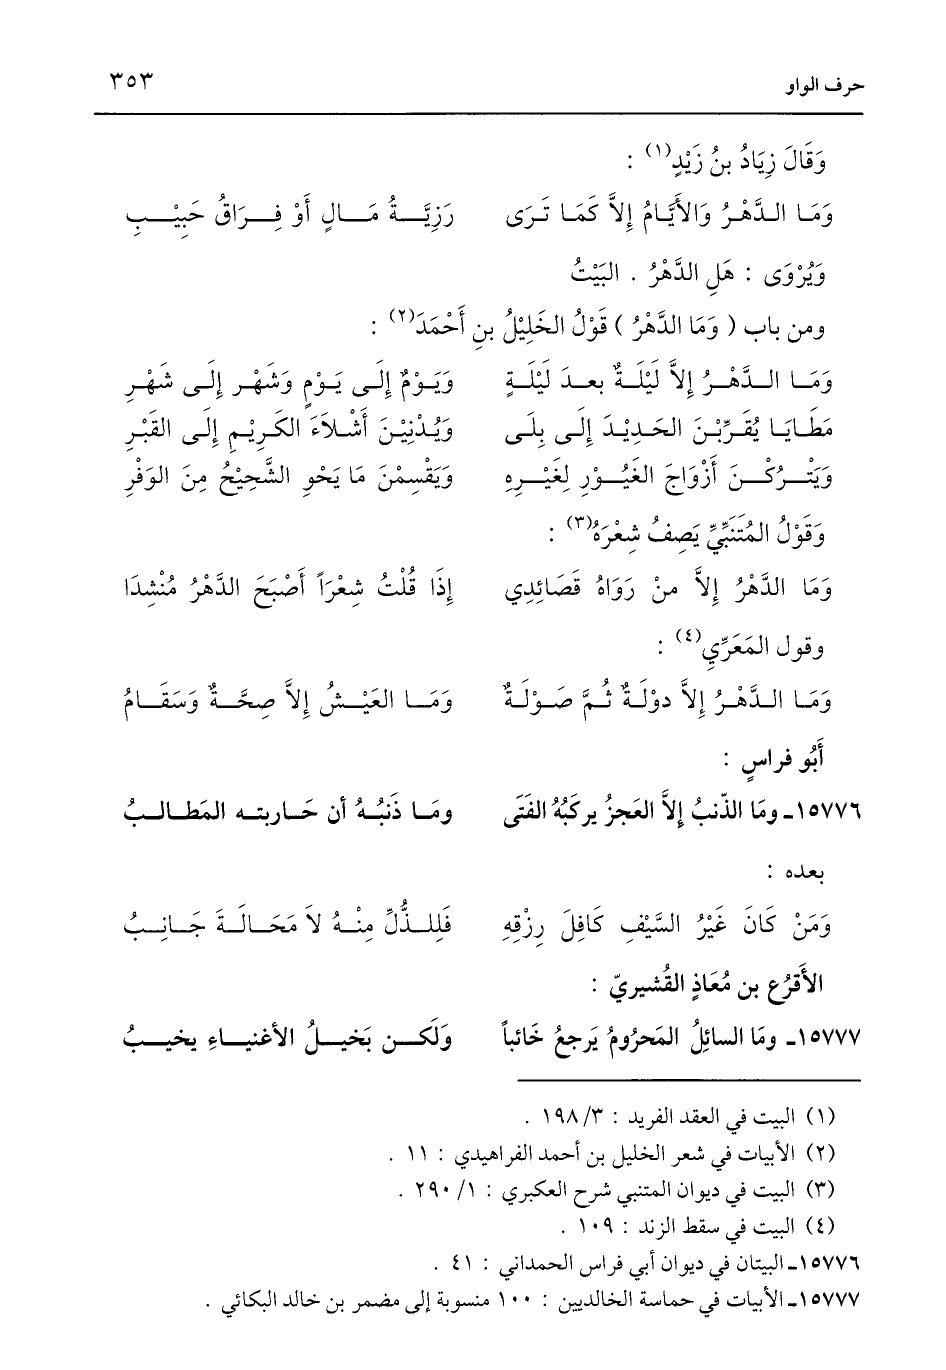 حرف الواو ٣٥٣
وَقَالَ زِيَادُ بنُ زَيْدٍ(١) :
وَمَا الدَّهْرُ وَالأَيَّامُ إِلاَّ كَمَا تَرَى رَزِيَّةُ مَالٍ أَوْ فِرَاقُ حَبِيْبِ
وَيُرْوَى : هَلِ الدَّهْرُ . البَيْتُ
ومن باب ( وَمَا الدَّهْرُ ) قَوْلُ الخَلِيْلُ بنِ أَحْمَدَ(٢) :
وَمَا الدَّهْرُ إِلاَّ لَيْلَةٌ بعدَ لَيْلَةٍ وَيَوْمٌ إِلَى يَوْمٍ وَشَهْر إِلَى شَهْرِ
مَطَايَا يُقَرِّبْنَ الحَدِيْدَ إِلَى بِلَى وَيُدْنِيْنَ أَشْلاَءَ الكَرِيْمِ إِلَى القَبْرِ
وَيَتْرُكْنَ أَزْوَاجَ الغَيُوْرِ لِغَيْرِهِ وَيَقْسِمْنَ مَا يَحْوِ الشَّحِيْحُ مِنَ الوَفْرِ
وَقَوْلُ المُتَنَبِّيِّ يَصِفُ شِعْرَهُ(٣) :
وَمَا الدَّهْرُ إِلاَّ منْ رَوَاهُ قَصَائِدِي إِذَا قُلْتُ شِعْراً أَصْبَحَ الدَّهْرُ مُنْشِدَا
وقول المَعَرِّيِ(٤) :
وَمَا الدَّهْرُ إِلاَّ دوْلَةٌ ثُمَّ صَوْلَةٌ وَمَا العَيْشُ إِلاَّ صِحَّةٌ وَسَقَامُ
أَبُو فراسٍ :
١٥٧٧٦ـ ومَا الذّنبُ إِلاَّ العَجزُ يركبُهُ الفَتَى ومَا ذَنبُهُ أن حَاربته المَطَالبُ
بعده :
وَمَنْ كَانَ غَيْرُ السَّيْفِ كَافِلَ رِزْقِهِ فَلِلذُّلِّ مِنْهُ لاَ مَحَالَةَ جَانِبُ
الأَقرُع بن مُعَاذٍ القُشيريّ :
١٥٧٧٧ـ ومَا السائِلُ المَحرُومُ يَرجعُ خَائباً وَلَكن بَخيلُ الأغنياءِ يخيبُ
(١) البيت في العقد الفريد : ٣/ ١٩٨ .
(٢) الأبيات في شعر الخليل بن أحمد الفراهيدي : ١١ .
(٣) البيت في ديوان المتنبي شرح العكبري : ١/ ٢٩٠ .
(٤) البيت في سقط الزند : ١٠٩ .
١٥٧٧٦ـ البيتان في ديوان أبي فراس الحمداني : ٤١ .
١٥٧٧٧ـ الأبيات في حماسة الخالديين : ١٠٠ منسوبة إلى مضمر بن خالد البكائي .